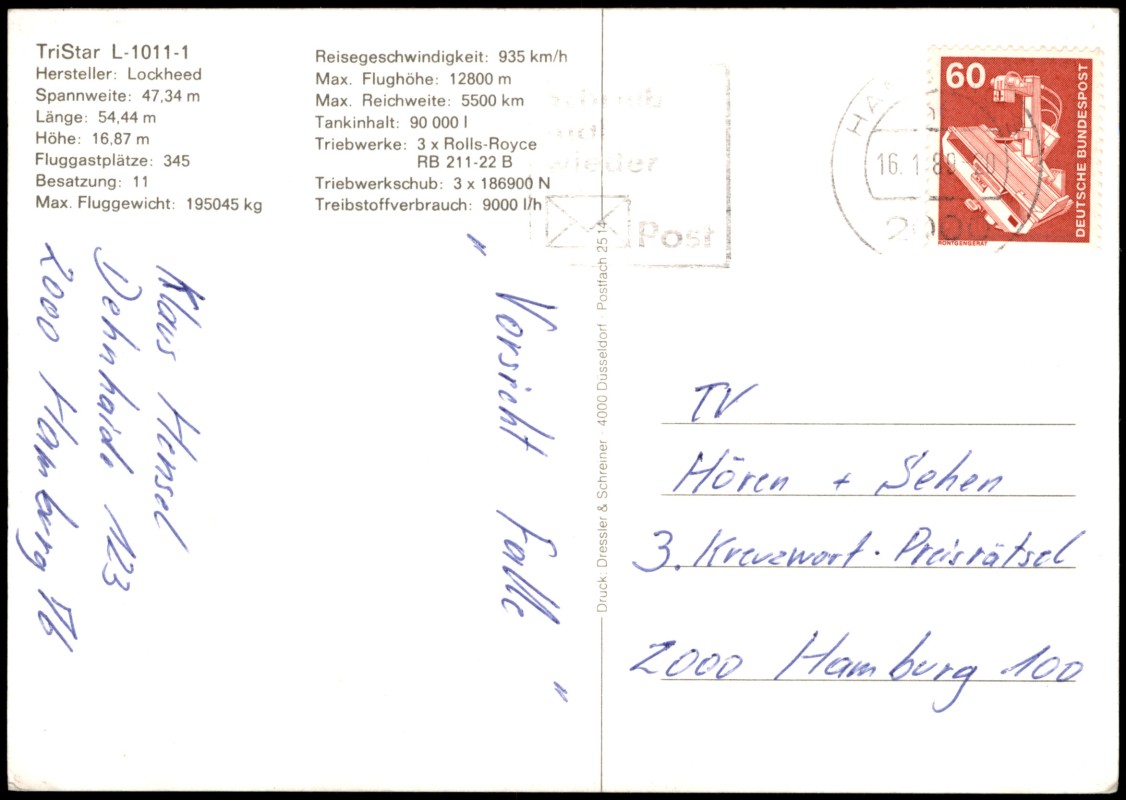 TriStar L-1011-1
Hersteller: Lockheed
Spannweite: 47,34 m
Länge: 54,44 m
Höhe: 16,87 m
Fluggastplätze: 345
Besatzung: 11
Max. Fluggewicht: 195045 kg
Reisegeschwindigkeit: 935 km/h
Max. Flughöhe: 12800 m
Max. Reichweite: 5500 km
Tankinhalt: 90 000 l
Triebwerke: 3 x Rolls-Royce
RB 211-22 B
Triebwerkschub: 3 x 186900 N
Treibstoffverbrauch: 9000 l/h
Schreib
mal
wieder
Post
60
DEUTSCHE BUNDESPOST
RÖNTGENGERÄT
16. 1. 89-20
2000
Klaus Hensel
Dehnhaide 123
2000 Hamburg 76
" Vorsicht Falle "
Druck: Dressler & Schreiner · 4000 Düsseldorf · Postfach 2514
TV
Hören + Sehen
3. Kreuzwort-Preisrätsel
2000 Hamburg 100